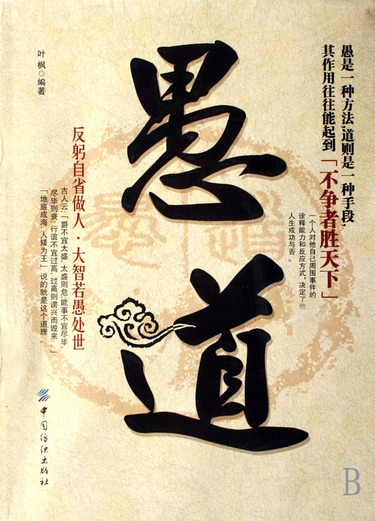 愚是一种方法,道则是一种手段,
其作用往往能起到「不争者胜天下」
一个人对他自己周围事件的
诠释能力和反应方式,决定了他
人生成功与否。
愚道
反躬自省做人·大智若愚处世
古人云:「爵不宜太盛,太盛则危;能事不宜尽毕,
尽毕则衰;行谊不宜过高,过高则谤兴而毁来。」
「地底成海,人矮为王」说的就是这个道理。
叶枫 编著
中国纺织出版社
B